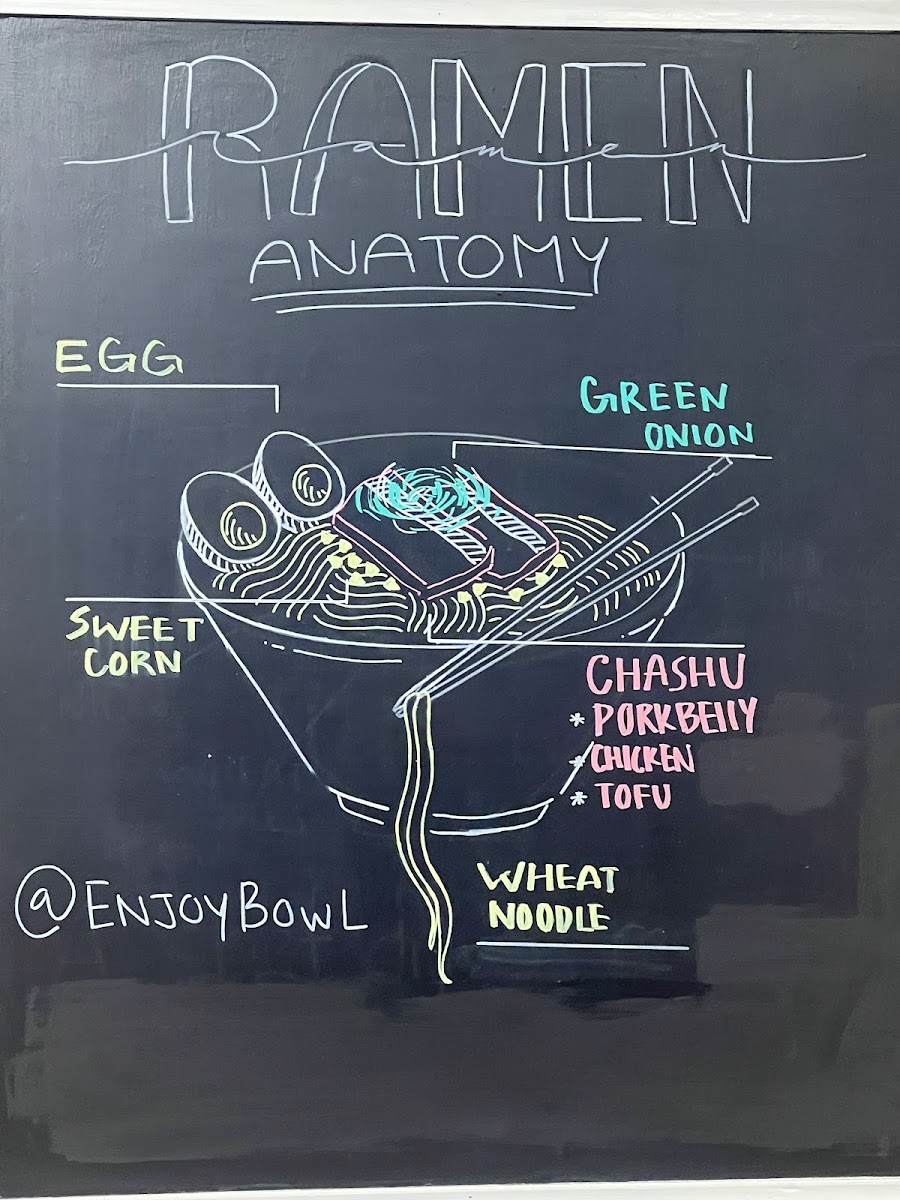 RAMEN
Ramen
ANATOMY
EGG
GREEN
ONION
SWEET
CORN
CHASHU
* PORKBELLY
* CHICKEN
* TOFU
WHEAT
NOODLE
@ENJOYBOWL